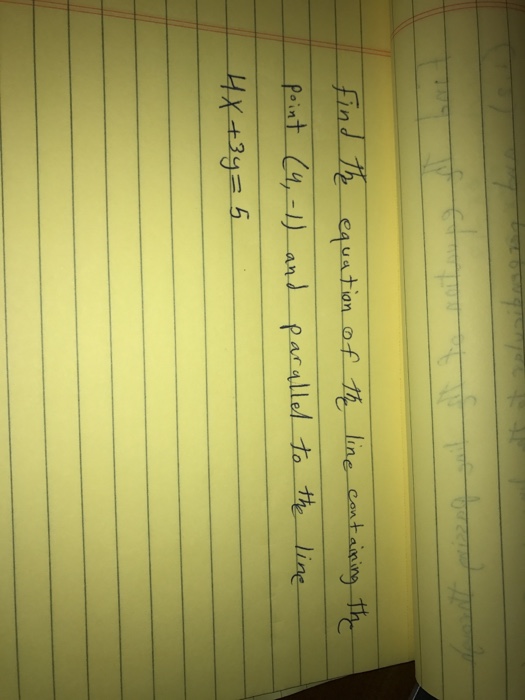 find the equation of the line containing the
point (4,-1) and parallel to the line
4x+3y=5